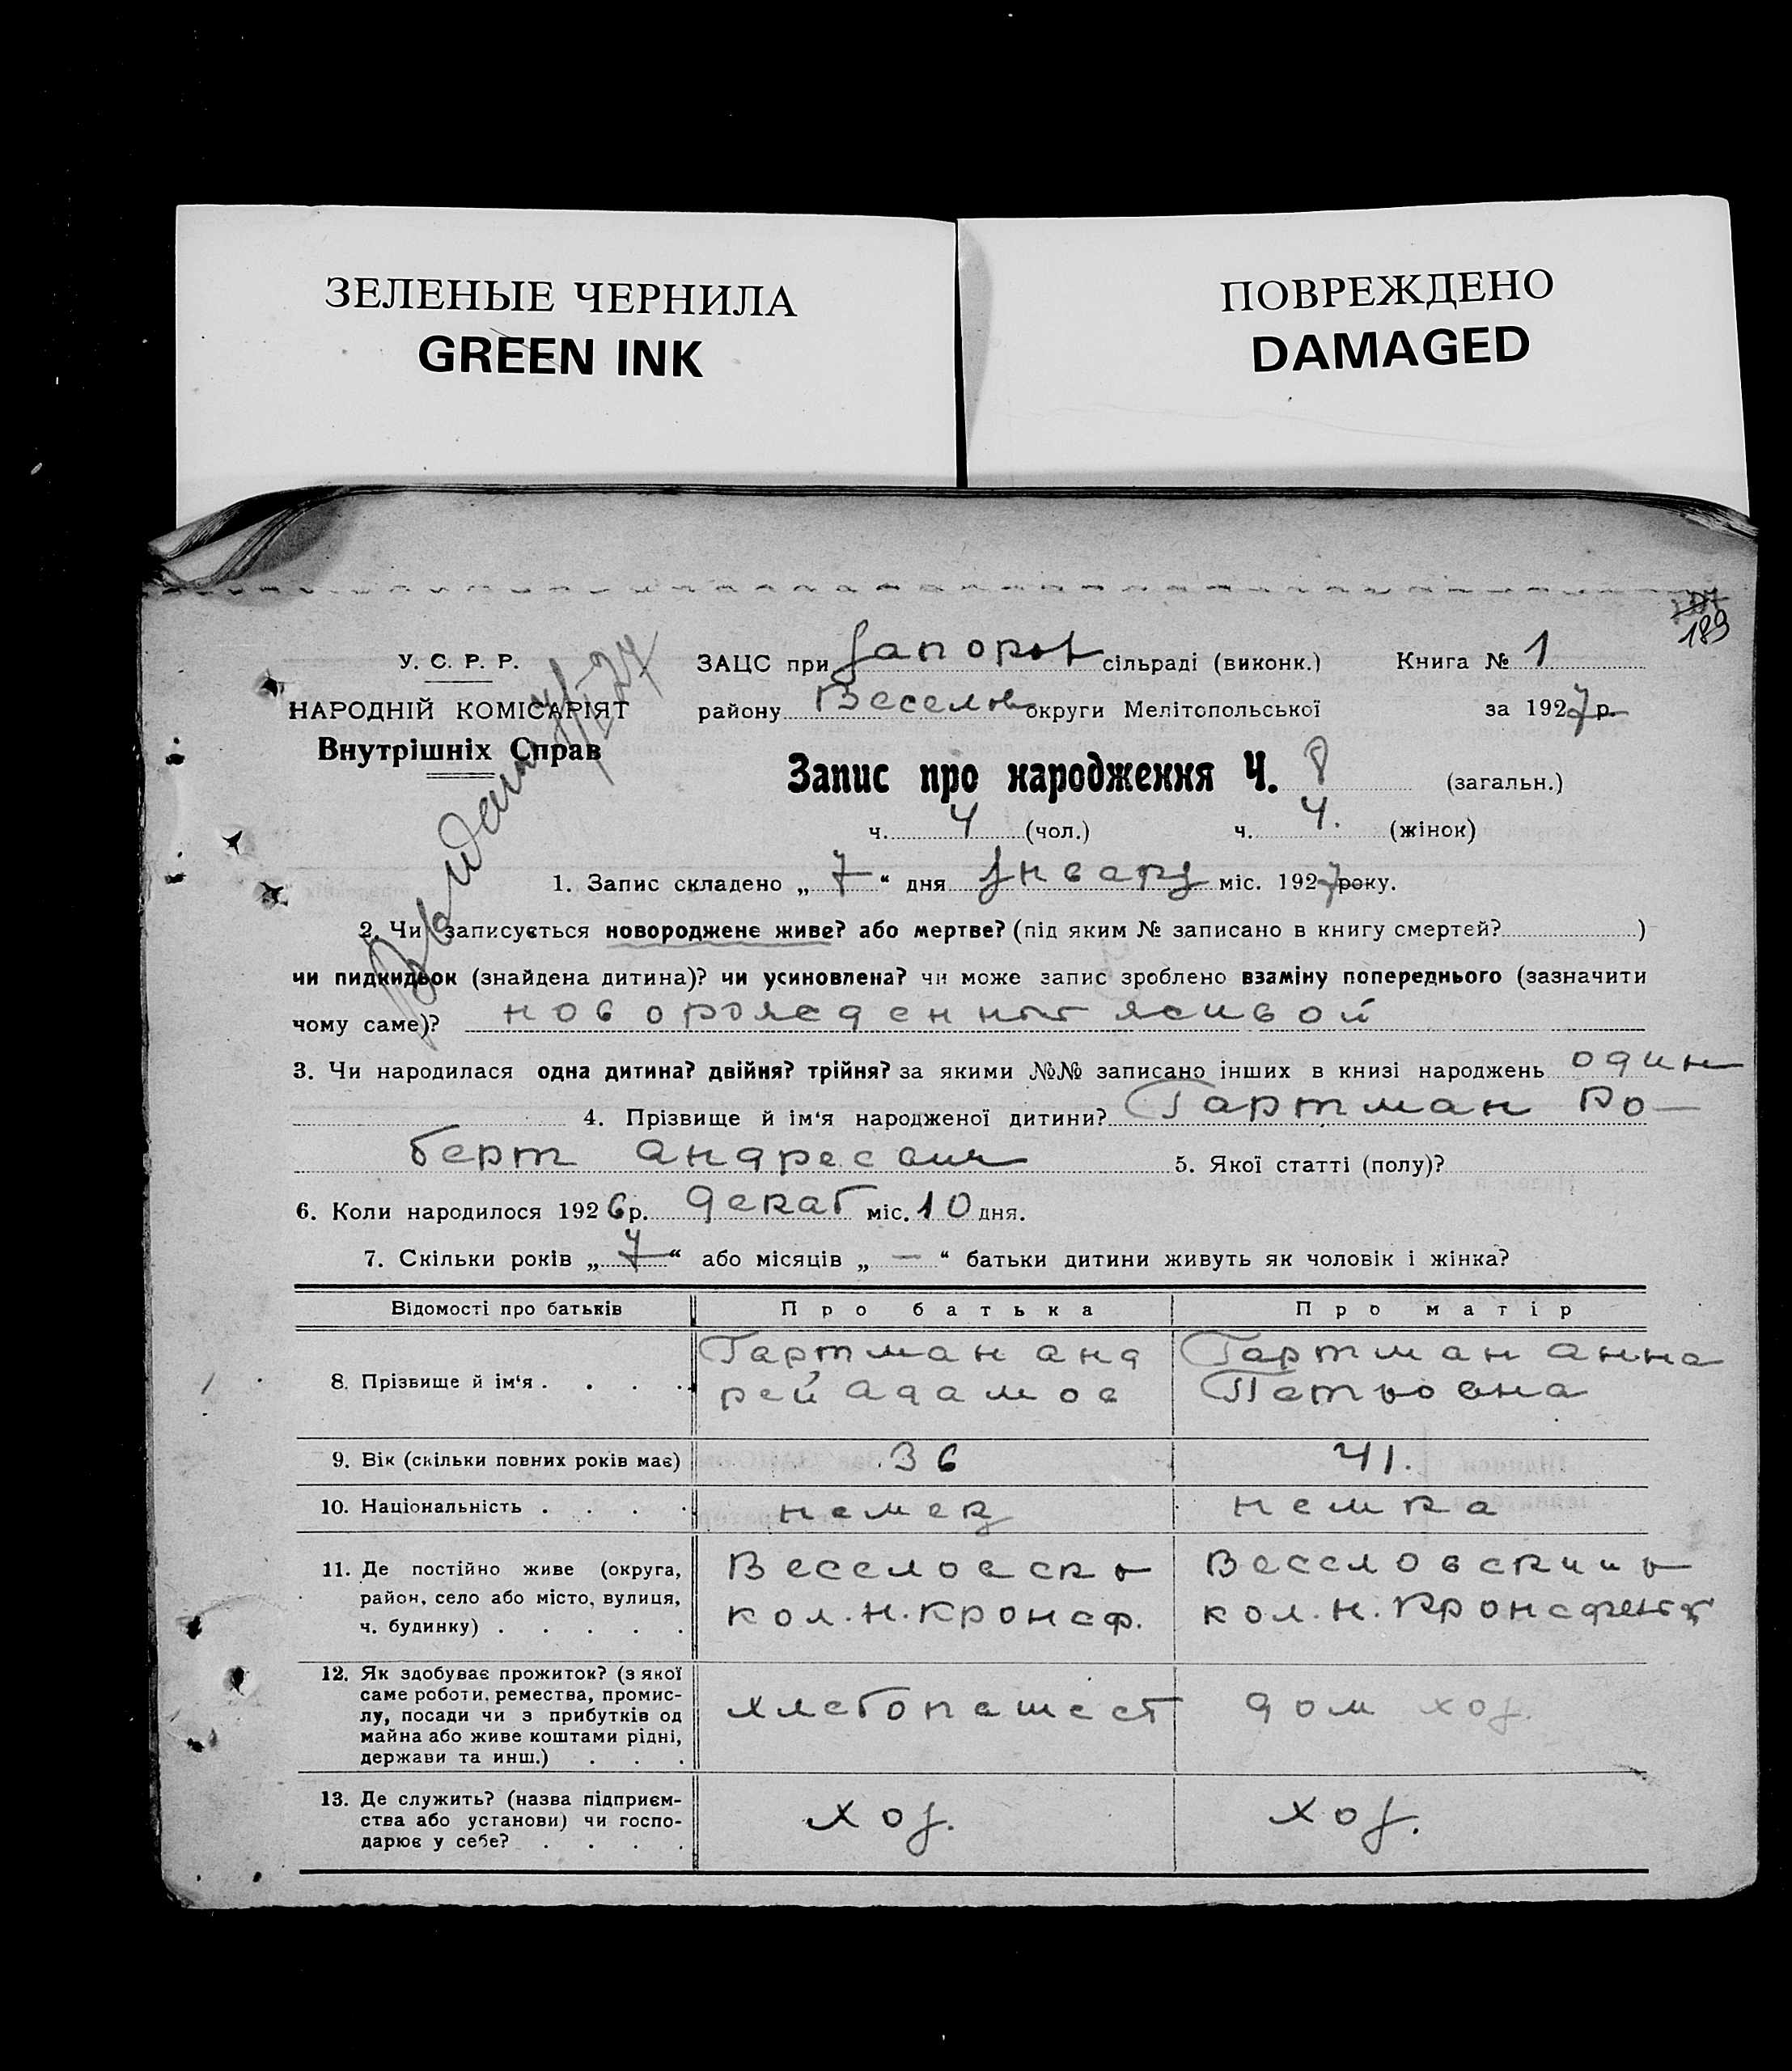 ЗЕЛЕНЫЕ ЧЕРНИЛА
GREEN INK
ПОВРЕЖДЕНО
DAMAGED
189
У. С. Р. Р.
НАРОДНІЙ КОМІСАРІЯТ
Внутрішніх Справ
ЗАЦС при Запорож сільраді (виконк.) Книга № 1
району Веселов округи Мелітопольської за 1927 р.
Запис про народження Ч. 8 (загальн.)
ч. 4 (чол.) ч. 4. (жінок)
1. Запис складено „ 7 “ дня Января міс. 1927 року.
2. Чи записується новороджене живе? або мертве? (під яким № записано в книгу смертей? )
чи пидкидьок (знайдена дитина)? чи усиновлена? чи може запис зроблено взаміну попереднього (зазначити
чому саме)? новорожденный живой
3. Чи народилася одна дитина? двійня? трійня? за якими №№ записано інших в книзі народжень один
4. Прізвище й ім‘я народженої дитини? Гартман Ро–
берт Андреевич 5. Якої статті (полу)?
6. Коли народилося 1926 р. Декаб міс. 10 дня.
7. Скільки років „ 7 “ або місяців „ — “ батьки дитини живуть як чоловік і жінка?
Відомості про батьків Про батька Про матір
8. Прізвище й ім‘я . . . . Гартман Анд
рей Адамов
Гартман Анна
Петровна
9. Вік (скільки повних років має) 36 41.
10. Національність . . . . немец немка
11. Де постійно живе (округа,
район, село або місто, вулиця,
ч. будинку) . . . . .
Веселовск
кол. Н. Кронсф.
Веселовский
кол. Н. Кронсфельд
12. Як здобуває прожиток? (з якої
саме роботи, ремества, промис-
лу, посади чи з прибутків од
майна або живе коштами рідні,
держави та инш.) . . .
хлебопашест
дом хоз.
13. Де служить? (назва підприєм-
ства або установи) чи госпо-
дарює у себе? . . . .
хоз.
хоз.